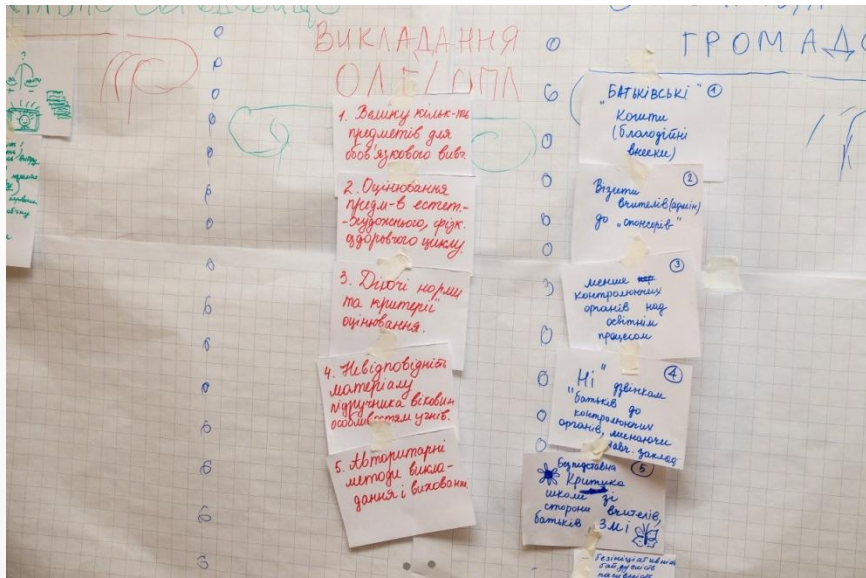 ВИКЛАДАННЯ
1. Велику кільк-ть
предметів для
обов'язкового вивч.
2. Оцінювання
предм-в естет.-
-художнього, фізк.
здоровчого циклу.
3. Діючі норми
та критерії
оцінювання.
4. Невідповідність
матеріалу
підручника віковим
особливостям учнів.
5. Авторитарні
методи викла-
дання і виховання.
ГРОМАДС
"БАТЬКІВСЬКІ" 1
Кошти
(благодітні
внески)
2
Візити
вчителів (адмін)
до „спонсорів"
3
менше
контролюючих
органів над
освітнім
процесом
4
"Ні" дзвінкам
батьків до
контролюючих
органів, минаючи
навч. заклад
5
Безпідставна
Критика
школи зі
сторони вчителів,
батьків, ЗМІ
Безініціативність
байдужість
пасивність